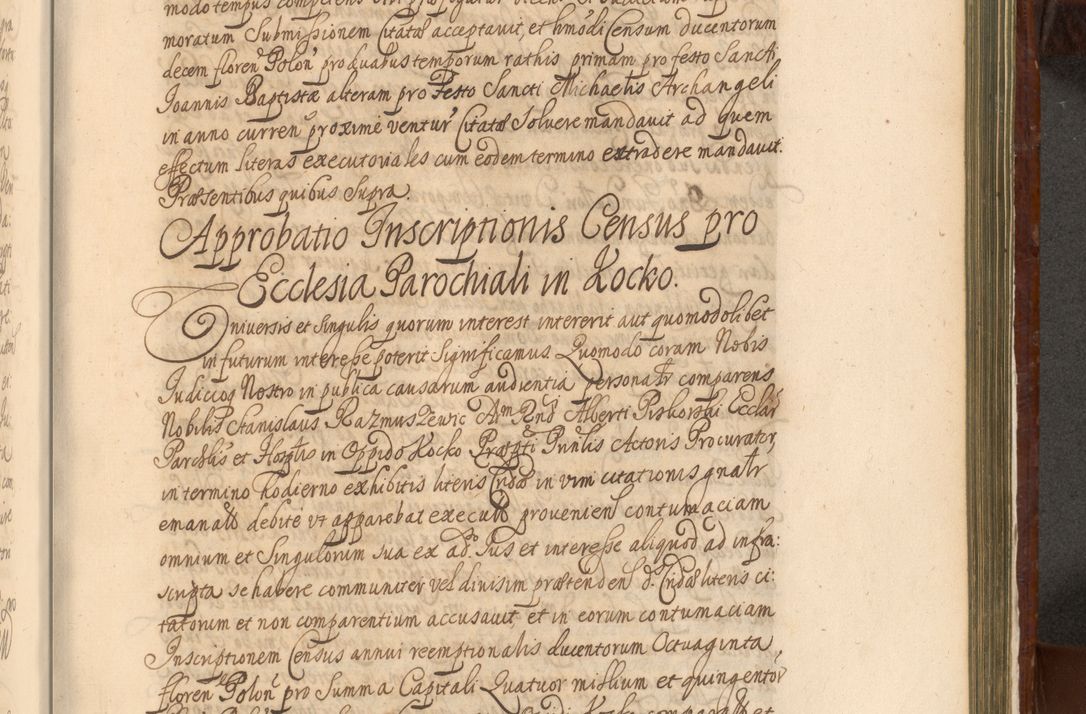 modo tempus competens
moratum Submissionem Citatae acceptavit, et hmodi Censum ducentorum
decem floren Polon pro duabus temporum rathis primam pro festo Sancti
Joannis Baptistae alteram pro Festo Sancti Michaelis Archangeli
in anno curren proxime ventur Citatae Solvere mandavit ad quem
effectum literas executoriales cum eodem termino extradere mandavit.
Praesentibus quibus Supra
Approbatio Inscriptionis Census pro
Ecclesia Parochiali in Kocko.
Universis et Singulis quorum interest intererit aut quomodolibet
in futurum interesse poterit Significamus. Quomodo coram Nobis
Judicioq Nostro in publica causarum audientia personatr comparens
Nobilis Stanislaus Razmuszewic Am Rnd Alberti Piskorski Ecclae
Parchlis et Hosptlis in Oppido Kocko Praepti Prinlis Actoris Procurator,
in termino hodierno exhibitis literis Cridae in vim citationis gnatr
emanat debite ut apparebat execut provenien contumaciam
omnium et Singulorum sua ex ad Jus et interesse aliquod ad infra:
scripta se habere communiter vel divisim praetenden d. Cridae literis ci:
tatorum et non comparentium accusavit, et in eorum contumaciam
Inscriptionem Census annui reemptionalis ducentorum Octuaginta,
floren Polon pro Summa Capitali Quatuor millium et quingentor